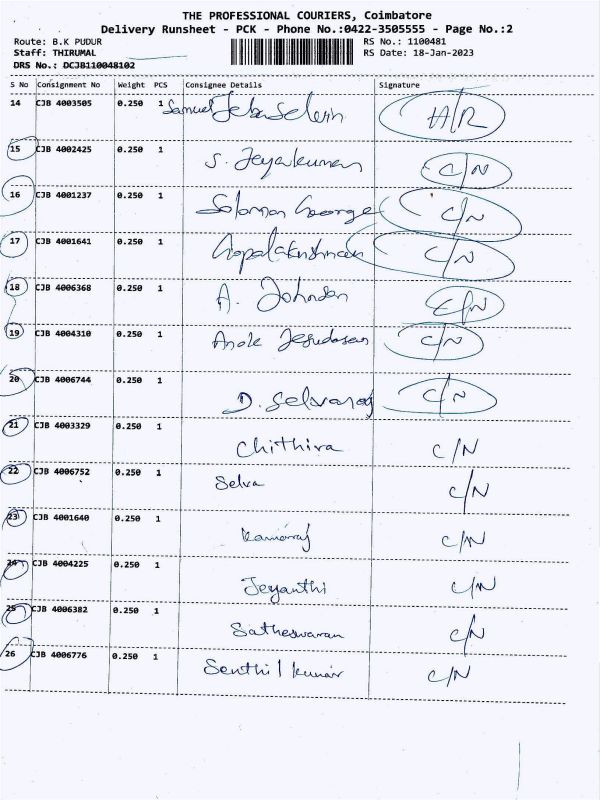 THE PROFESSIONAL COURIERS, Coimbatore
Delivery Runsheet - PCK - Phone No.:0422-3505555 - Page No.:2
Route: B.K PUDUR RS No.: 1100481
Staff: THIRUMAL RS Date: 18-Jan-2023
DRS No.: DCJB110048102
S No Consignment No Weight PCS Consignee Details Signature
14 CJB 4003505 0.250 1 Samuel Jeba Selvin H/R
15 CJB 4002425 0.250 1 S. Jeyakumar C/N
16 CJB 4001237 0.250 1 Solomon George C/N
17 CJB 4001641 0.250 1 Gopalakrishnan C/N
18 CJB 4006368 0.250 1 A. Johnson C/N
19 CJB 4004310 0.250 1 Jesudasan C/N
20 CJB 4006744 0.250 1 D. Selvaraj C/N
21 CJB 4003329 0.250 1 Chithira C/N
22 CJB 4006752 0.250 1 Selva C/N
23 CJB 4001640 0.250 1 Kamaraj C/N
24 CJB 4004225 0.250 1 Jeyanthi C/N
25 CJB 4006382 0.250 1 Satheswaran C/N
26 CJB 4006776 0.250 1 Senthil kumar C/N